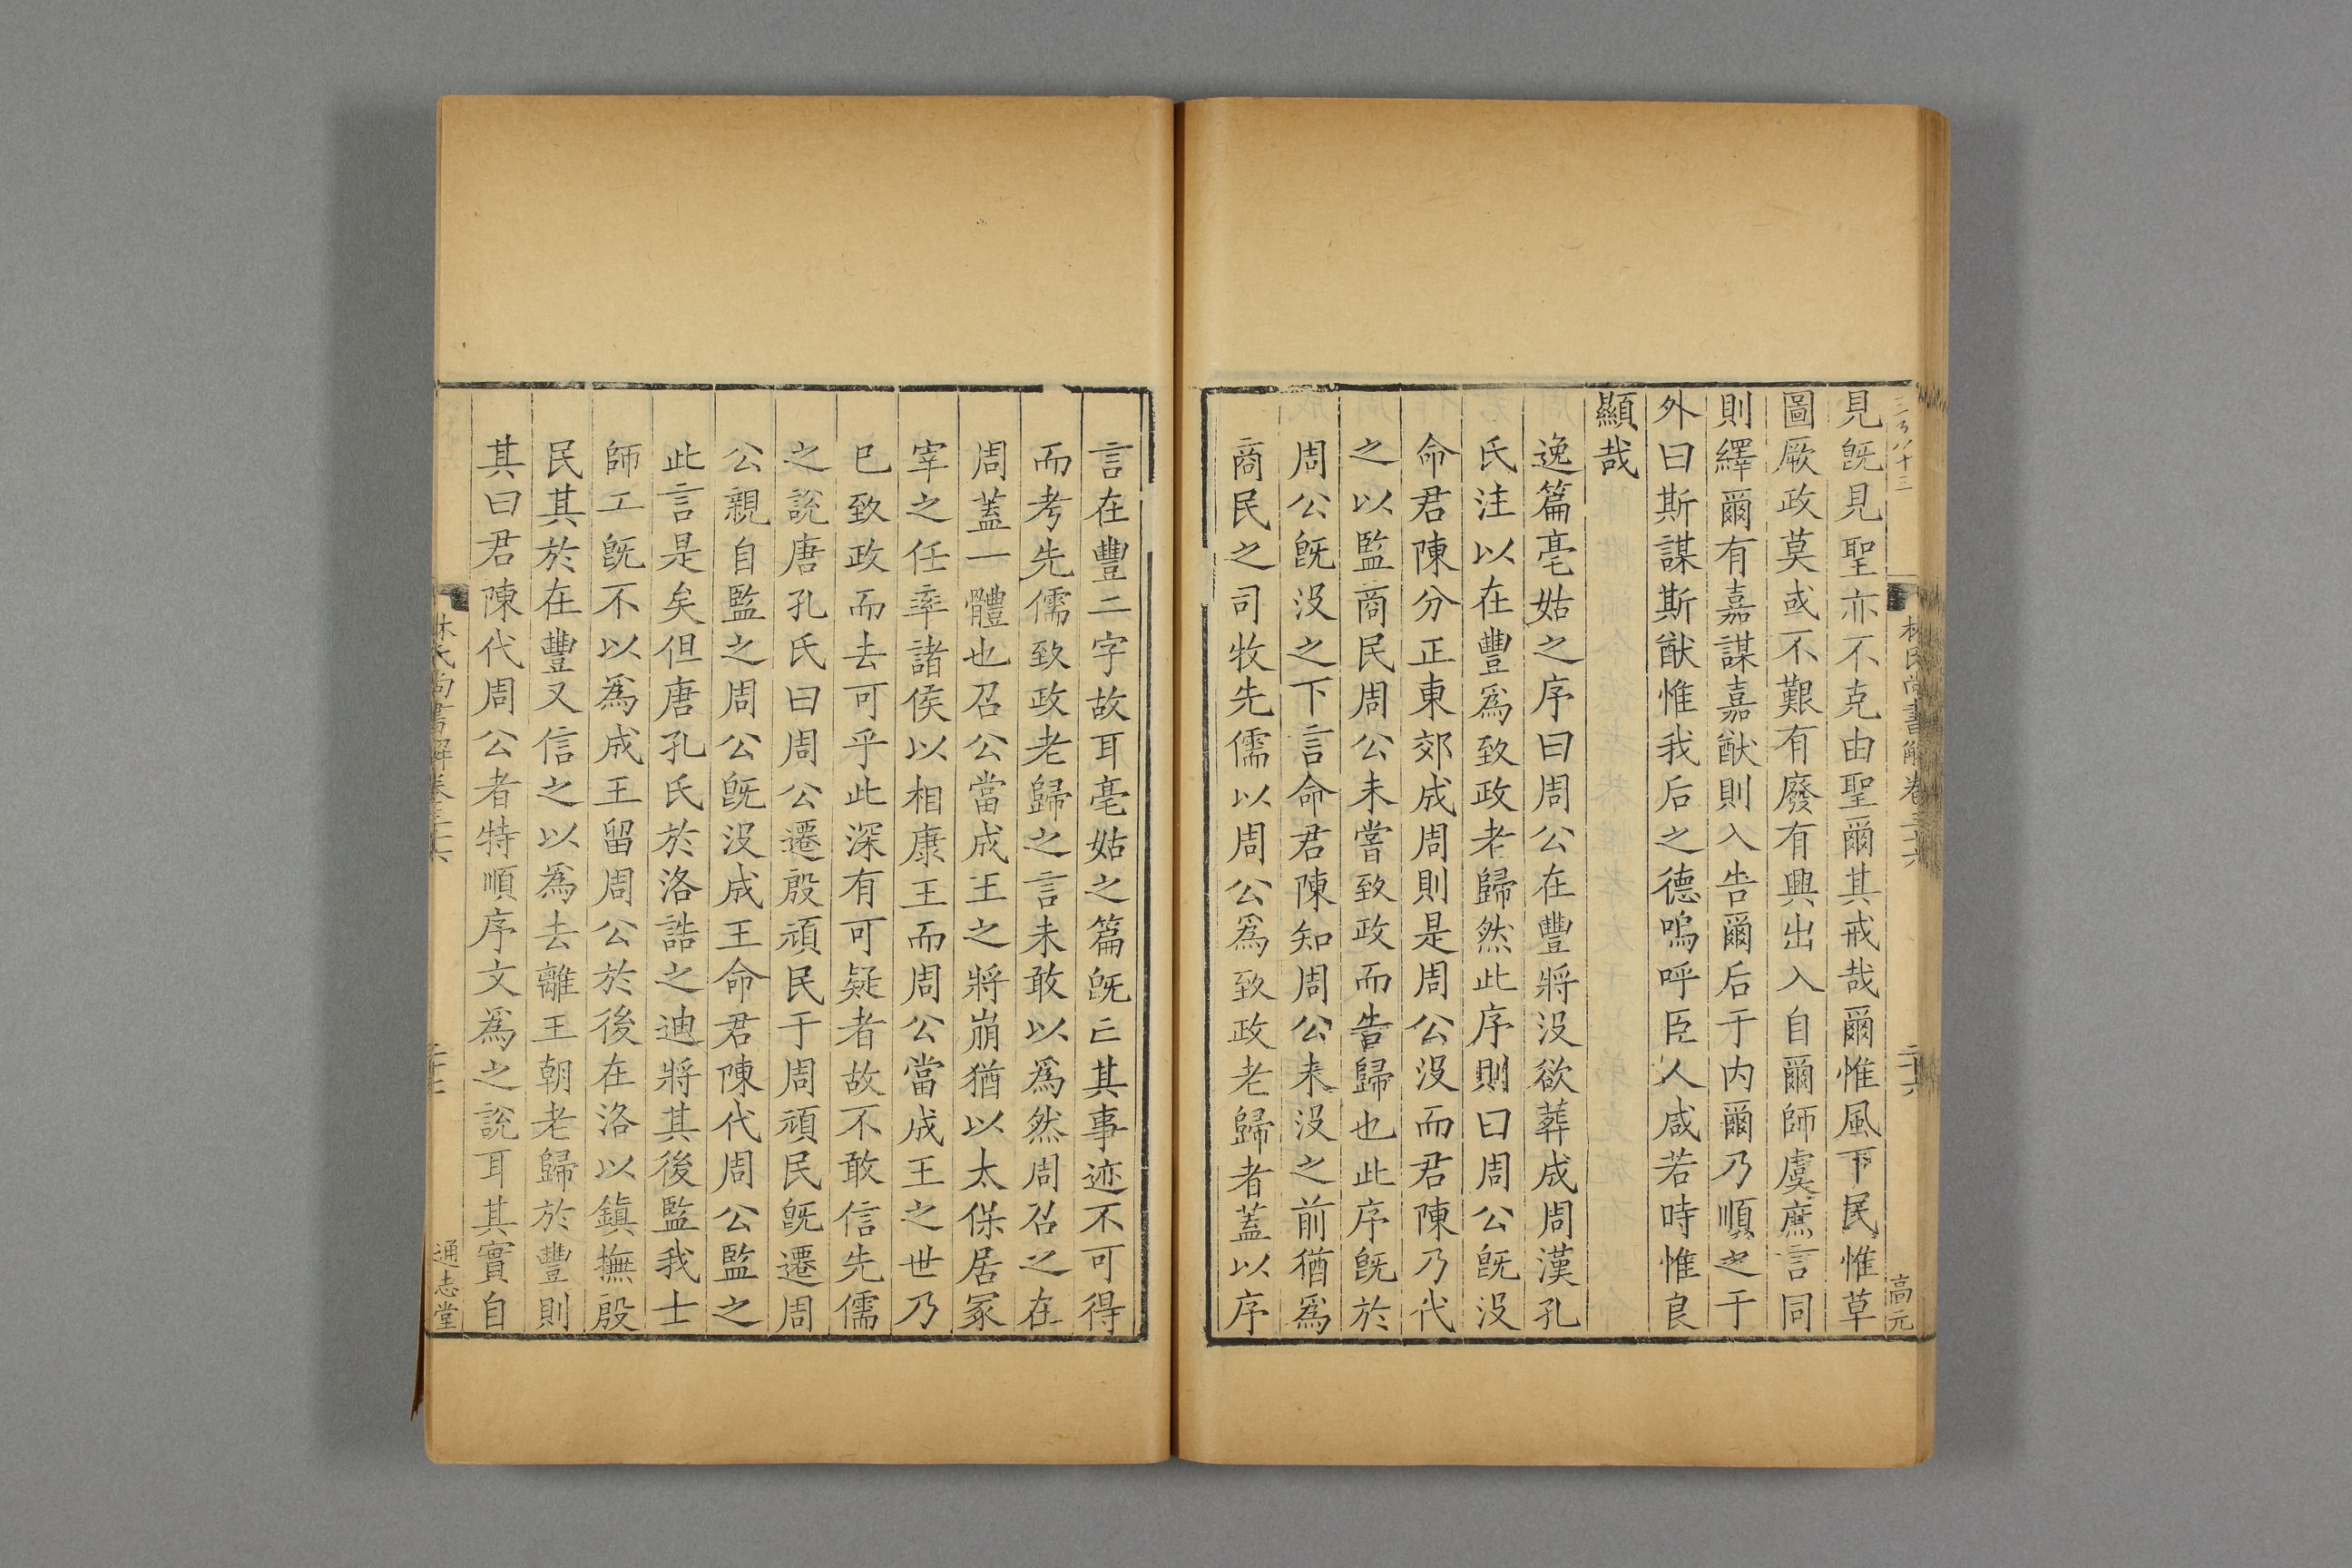 林氏尚書解卷三十六
二十六
高元
見旣見聖亦不克由聖爾其戒哉爾惟風下民惟草
圖厥政莫或不艱有廢有興出入自爾師虞庶言同
則繹爾有嘉謀嘉猷則入告爾后于內爾乃順之于
外曰斯謀斯猷惟我后之德嗚呼臣人咸若時惟良
顯哉
逸篇亳姑之序曰周公在豐將沒欲葬成周漢孔
氏注以在豐爲致政老歸然此序則曰周公旣沒
命君陳分正東郊成周則是周公沒而君陳乃代
之以監商民周公未嘗致政而告歸也此序旣於
周公旣沒之下言命君陳知周公未沒之前猶爲
商民之司牧先儒以周公爲致政老歸者蓋以序
言在豐二字故耳亳姑之篇旣亡其事迹不可得
而考先儒致政老歸之言未敢以爲然周召之在
周蓋一體也召公當成王之將崩猶以太保居冢
宰之任率諸侯以相康王而周公當成王之世乃
已致政而去可乎此深有可疑者故不敢信先儒
之說唐孔氏曰周公遷殷頑民于周頑民旣遷周
公親自監之周公旣沒成王命君陳代周公監之
此言是矣但唐孔氏於洛誥之迪將其後監我士
師工旣不以爲成王留周公於後在洛以鎮撫殷
民其於在豐又信之以爲去離王朝老歸於豐則
其曰君陳代周公者特順序文爲之說耳其實自
林氏尚書解卷三十六
二十七
通志堂